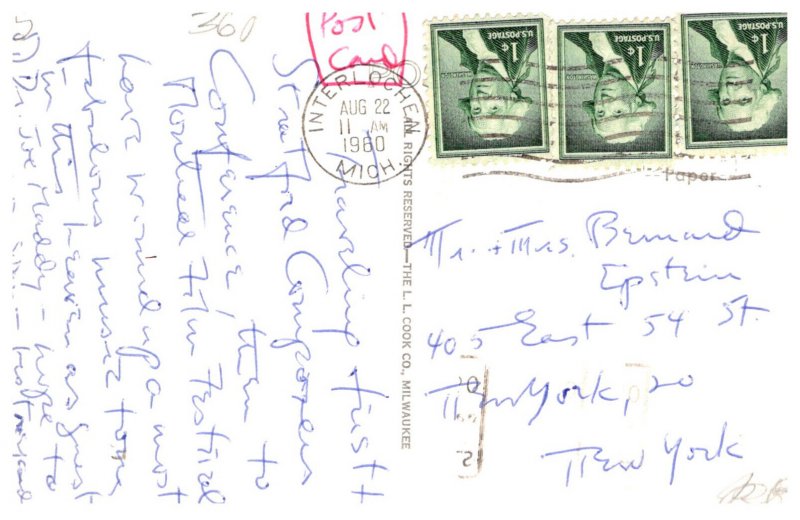 360
Post
Card
Traveling first
Stratford Composers
Conference then to
Montreal Film Festival
have wound up a most
fabulous music tour
in this heaven as guest
of Dr. Joe Maddy - hope to
INTERLOCHEN
AUG 22
11 AM
1960
MICH.
U.S. POSTAGE
1¢
U.S. POSTAGE
1¢
U.S. POSTAGE
1¢
ALL RIGHTS RESERVED—THE L. L. COOK CO., MILWAUKEE
Mr. + Mrs. Bernard
Epstein
405 East 54 St.
New York, 20
New York